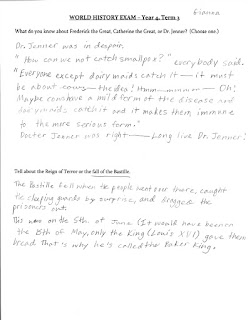 Gianna
WORLD HISTORY EXAM - Year 4, Term 3
What do you know about Frederick the Great, Catherine the Great, or Dr. Jenner? (Choose one.)
Dr. Jenner was in despair.
"How can we not catch smallpox?" everybody said.
"Everyone except dairy maids catch it — it must
be about cows — the idea! Hmm-mmmm — Oh!
Maybe cows have a mild form of the disease and
dairymaids catch it and it makes them immune
to the more serious form."
Doctor Jenner was right — Long live Dr. Jenner!
Tell about the Reign of Terror or the fall of the Bastille.
The Bastille fell when the people went over there, caught
the sleeping guards by surprise, and dragged the
prisoners out.
This was on the 5th of June (It would have been on
the 15th of May, only the King (Louis XVI) gave them
bread That is why he is called the Baker King.